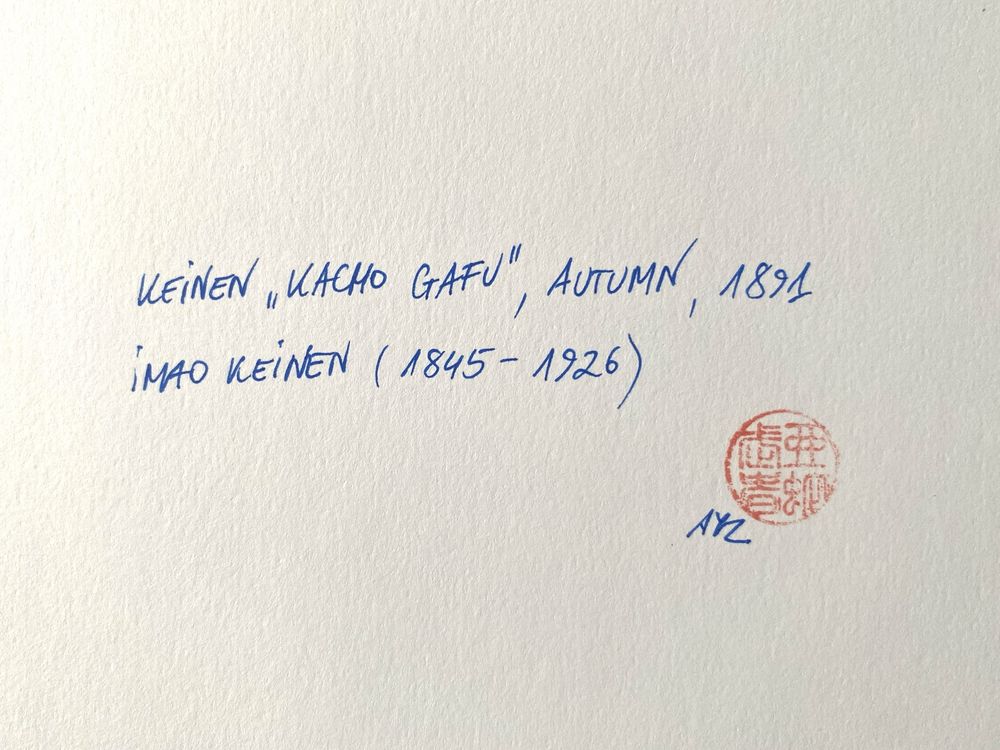 KEINEN „KACHO GAFU", AUTUMN, 1891
IMAO KEINEN (1845 - 1926)